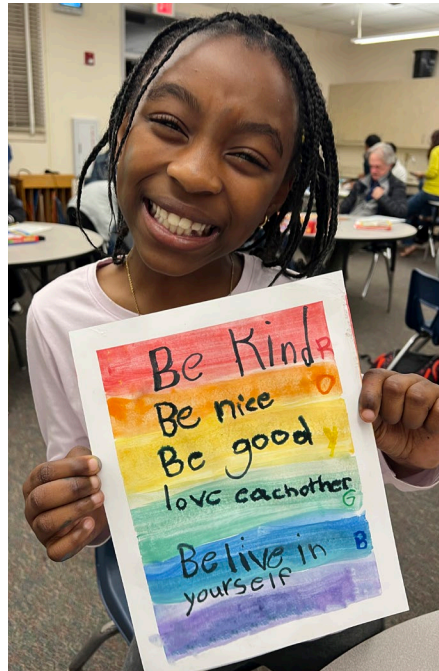 Be Kind R
Be nice O
Be good Y
love eachother G
Belive in B
yourself